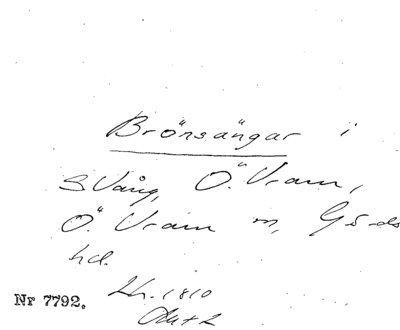 Brönsängar i
S Vång, Ö. Vram,
Ö. Vram sn, Gärds
hd.
Nr 7792. Lh. 1810